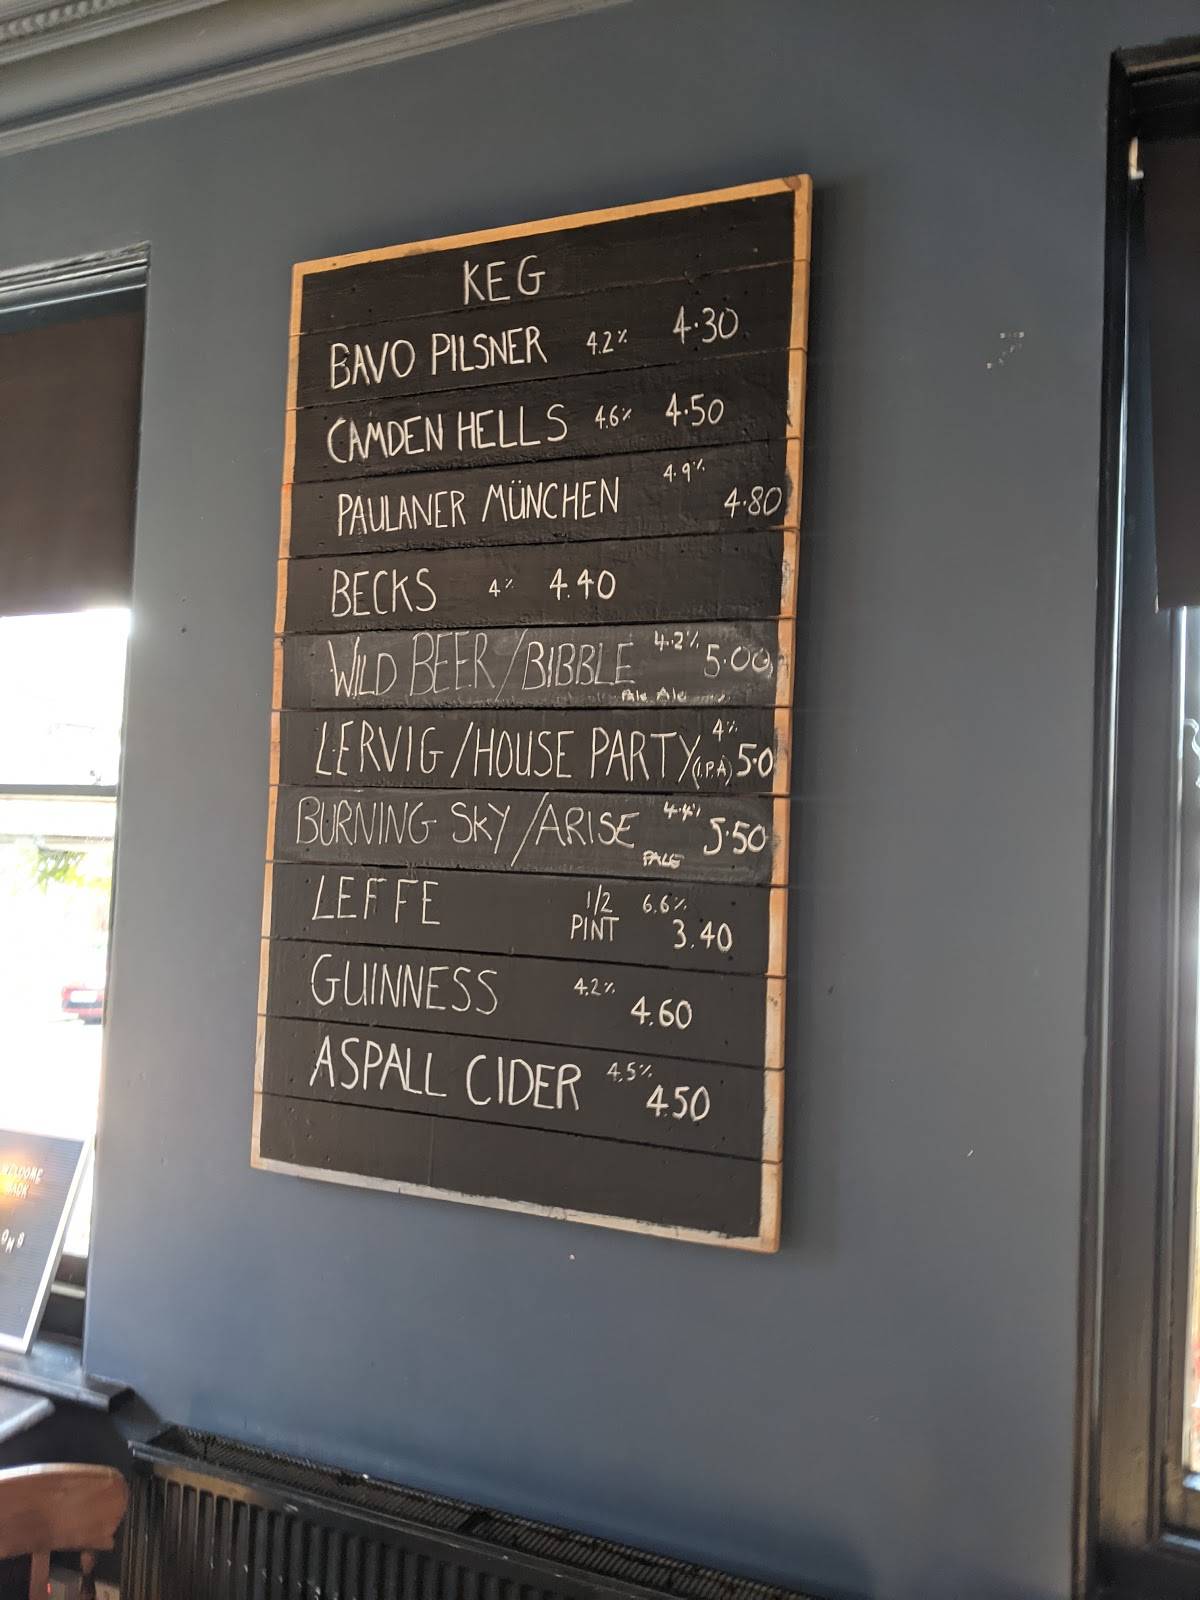 KEG
BAVO PILSNER 4.2% 4.30
CAMDEN HELLS 4.6% 4.50
PAULANER MÜNCHEN 4.9% 4.80
BECKS 4% 4.40
WILD BEER/BIBBLE 4.2% 5.00
Pale Ale
LERVIG/HOUSE PARTY (I.P.A) 4% 5.0
BURNING SKY/ARISE 4.4% 5.50
PALE
LEFFE 1/2 PINT 6.6% 3.40
GUINNESS 4.2% 4.60
ASPALL CIDER 4.5% 4.50
WELCOME
BACK